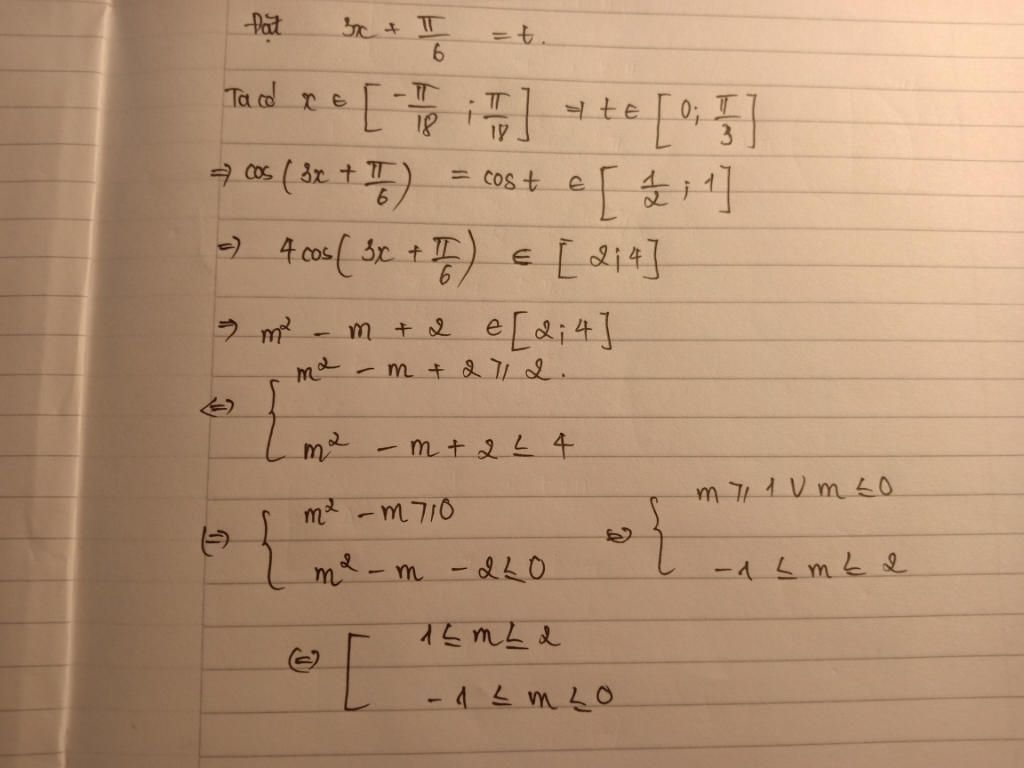 Đặt 3x + π/6 = t.
Ta có x ∈ [ -π/18 ; π/18 ] ⇒ t ∈ [ 0; π/3 ]
⇒ cos ( 3x + π/6 ) = cos t ∈ [ 1/2 ; 1 ]
⇒ 4 cos ( 3x + π/6 ) ∈ [ 2; 4 ]
⇒ m² - m + 2 ∈ [ 2; 4 ]
⇔ { m² - m + 2 ≥ 2.
m² - m + 2 ≤ 4
⇔ { m² - m ≥ 0 ⇔ { m ≥ 1 ∨ m ≤ 0
m² - m - 2 ≤ 0 -1 ≤ m ≤ 2
⇔ [ 1 ≤ m ≤ 2
-1 ≤ m ≤ 0